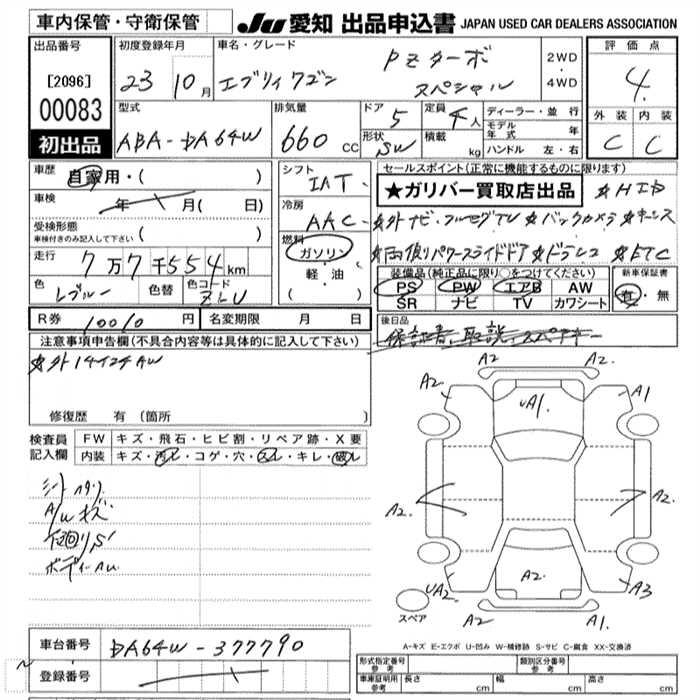 車内保管・守衛保管
JU 愛知 出品申込書 JAPAN USED CAR DEALERS ASSOCIATION
出品番号
[2096]
00083
初出品
初度登録年月
23 10月
車名・グレード
エブリィワゴン PZターボ
スペシャル
2WD
4WD
評価点
4.
外装 内装
C C
型式
ABA-DA64W
排気量
660 cc
ドア
5
定員
4人
形状
SW
積載
kg
ディーラー・並行
モデル年式 年
ハンドル 左・右
車歴
自家用・( )
車検
年 月( 日)
受検形態
車検付きのみ記入して下さい ( )
走行
7万7千554km
色
レブルー
色替
色コード
ZLU
シフト
IAT
冷房
AAC
燃料
ガソリン
軽・油
( )
セールスポイント(正常に機能するものに限ります)
★ガリバー買取店出品 ☆HID
☆外ナビ・フルセグTV ☆バックカメラ ☆キーレス
☆両側パワースライドドア ☆ドラレコ ☆ETC
装備品(純正品に限り○をつけてください)
PS PW エアB AW
SR ナビ TV カワシート
新車保証書
有・無
R券 10010円
名変期限 月 日
後日品
保証書、取説、スペアキー
注意事項申告欄(不具合内容等は具体的に記入して下さい)
☆外14インチAW
修復歴 有 (箇所 )
検査員
記入欄
FW キズ・飛石・ヒビ割・リペア跡・X要
内装 キズ・汚レ・コゲ・穴・スレ・キレ・破レ
A/Uキズ
下回りS
A2 A2.
A2. A1
UA1.
A2. A2.
A2.
UA2. A3
A2. A1.
スペア
A-キズ E-エクボ U-凹み W-補修跡 S-サビ C-腐食 XX-交換済
車台番号 DA64W-377790
登録番号
形式指定番号 参考
類別区分番号 参考
車庫証明用 参考 長さ cm 幅 cm 高さ cm